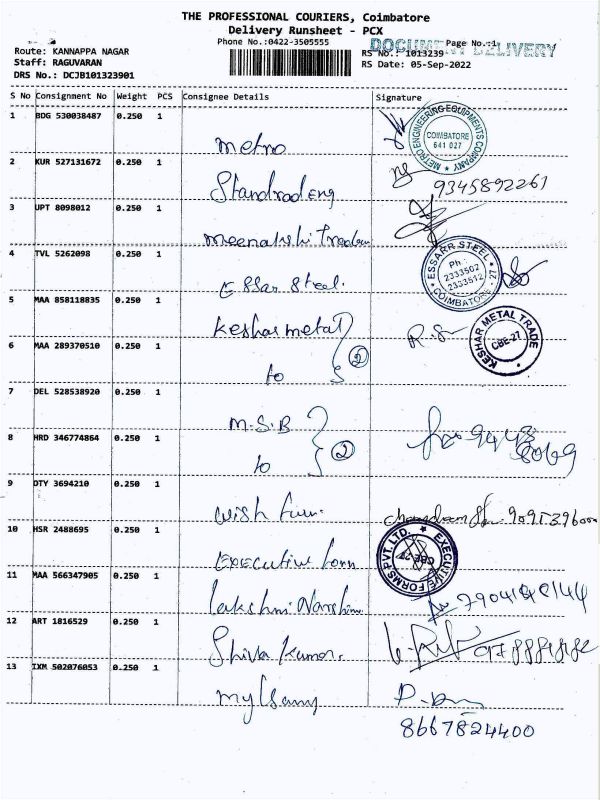 THE PROFESSIONAL COURIERS, Coimbatore
Delivery Runsheet - PCX
Phone No.:0422-3505555
DOCUMENT DELIVERY
Page No.:1
Route: KANNAPPA NAGAR
RS No.: 1013239
Staff: RAGUVARAN
RS Date: 05-Sep-2022
DRS No.: DCJB101323901
S No Consignment No Weight PCS Consignee Details Signature
1 BDG 530038487 0.250 1
metro
METRO ENGINEERING EQUIPMENTS COMPANY
COIMBATORE
641 027
2 KUR 527131672 0.250 1
9345892261
3 UPT 8098012 0.250 1
4 TVL 5262098 0.250 1
Essar Steel.
ESSARR STEEL
Ph.:
2333502
2333512
COIMBATORE - 27
5 MAA 858118835 0.250 1
keshar metal
R.S
KESHAR METAL TRADE
CBE-27
6 MAA 289370510 0.250 1
to 2
7 DEL 528538920 0.250 1
M.S.B
8 HRD 346774864 0.250 1
to 2
9 DTY 3694210 0.250 1
wish
10 HSR 2488695 0.250 1
Executive form
EXECUTIVE FORMS PVT. LTD.
CBE-27
11 MAA 566347905 0.250 1
lakshmi
12 ART 1816529 0.250 1
Shiva Kumar.
13 IXM 502076053 0.250 1
8667824400